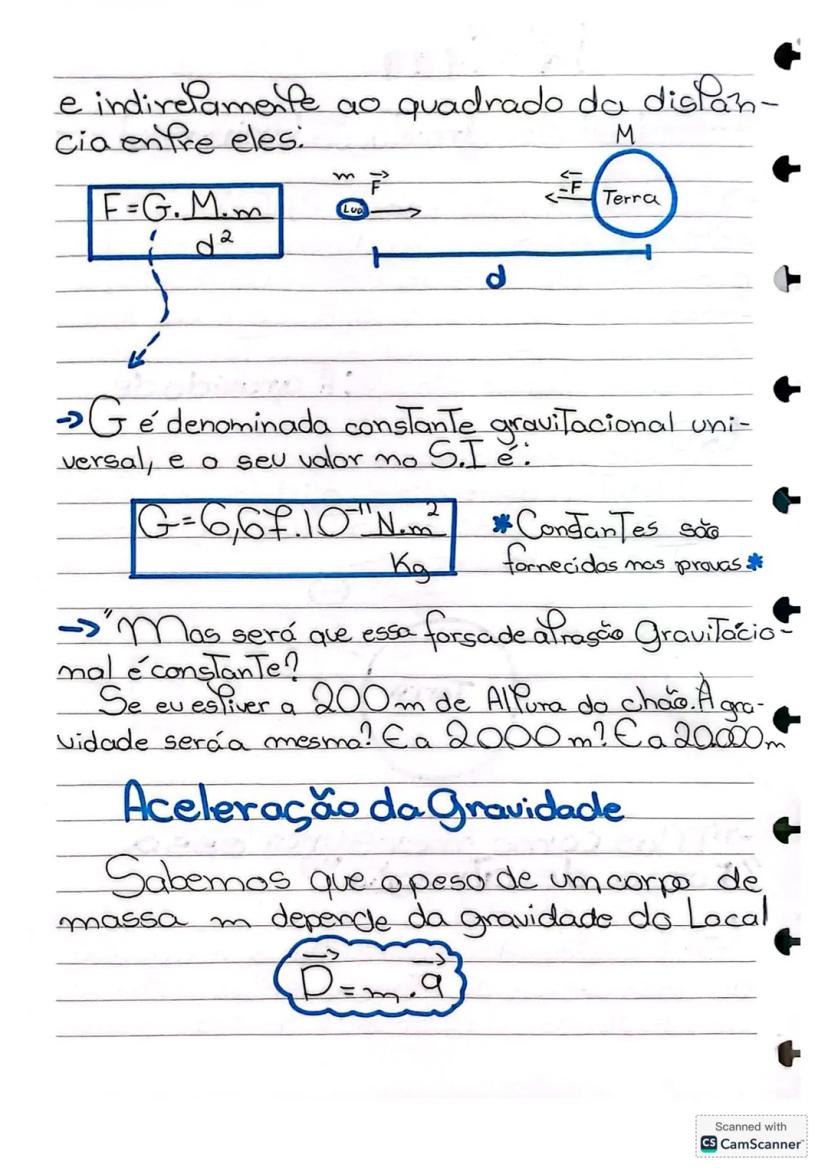 e indiretamente ao quadrado da distân-
cia entre eles:
M
m F
-F
F=G.M.m
d²
Lua
Terra
d
→ G é denominada constante gravitacional uni-
versal, e o seu valor no S.I é:
G=6,67.10⁻¹¹ N.m²
Kg
*Constantes são
fornecidas nas provas*
→ "Mas será que essa forsa de atrasão Gravitacio-
nal é constante?
Se eu estiver a 200m de Altura do chão. A gra-
vidade será a mesma? E a 2000m? E a 20.000m
Aceleração da Gravidade
Sabemos que o peso de um corpo de
massa m depende da gravidade do Local
P=m.g
Scanned with
CS CamScanner